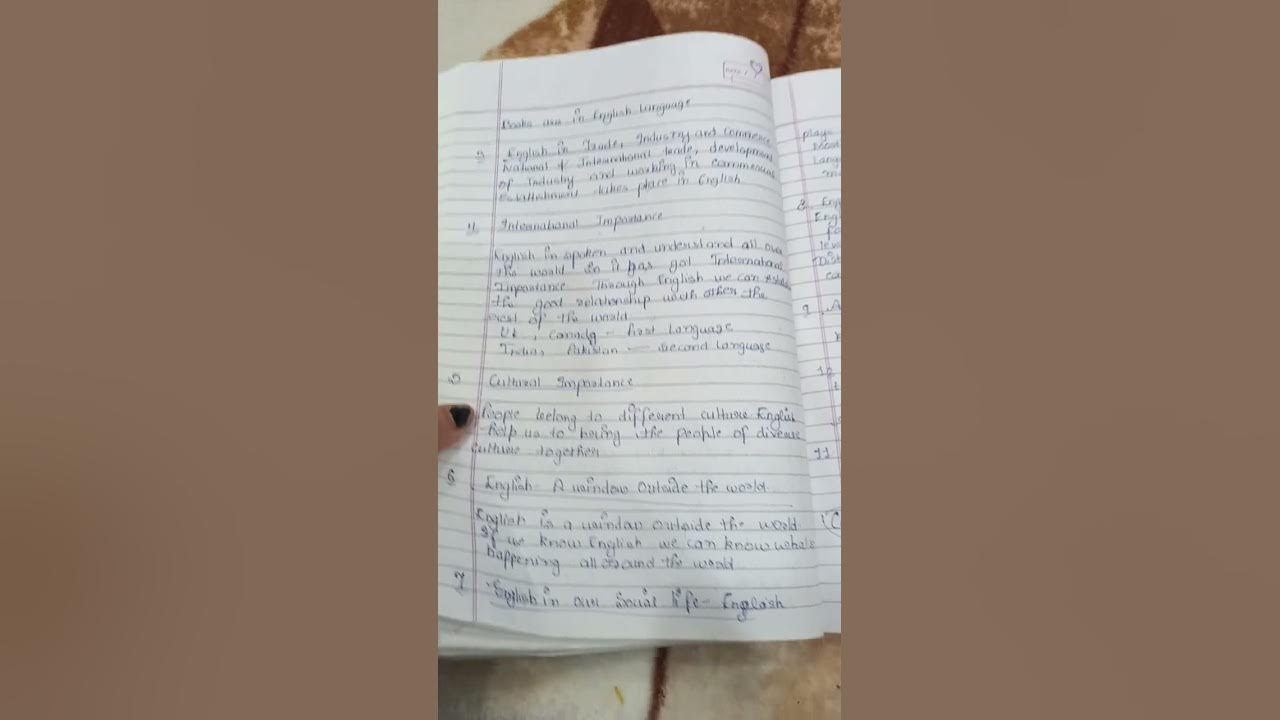 Books are in English Language
3 English in Trade, Industry and Commerce
National & International trade, development
of Industry and working in commercial
establishment takes place in English
4. International Importance
English in spoken and understand all over
the world in it has got International
Importance Through English we can establ
the good relationship with other the
rest of the world
UK, Canada - first Language
India, Pakistan — Second Language
5 Cultural Importance
People belong to different culture English
help us to bring the people of diverse
culture together
6 English- A window Outside the world
English is a window outside the world.
If we know English we can know whats
happening all around the world
7 English in our social life- English
plays
Lang
8. Eng
Engl
Dist
9. A
10
11